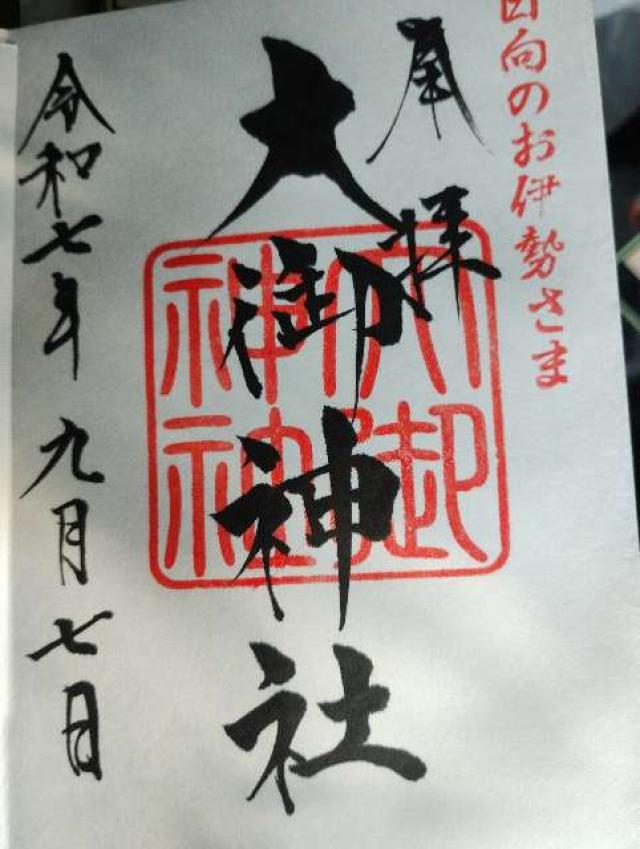 日向のお伊勢さま
奉拝
大御神社
大御
神社
令和七年九月七日